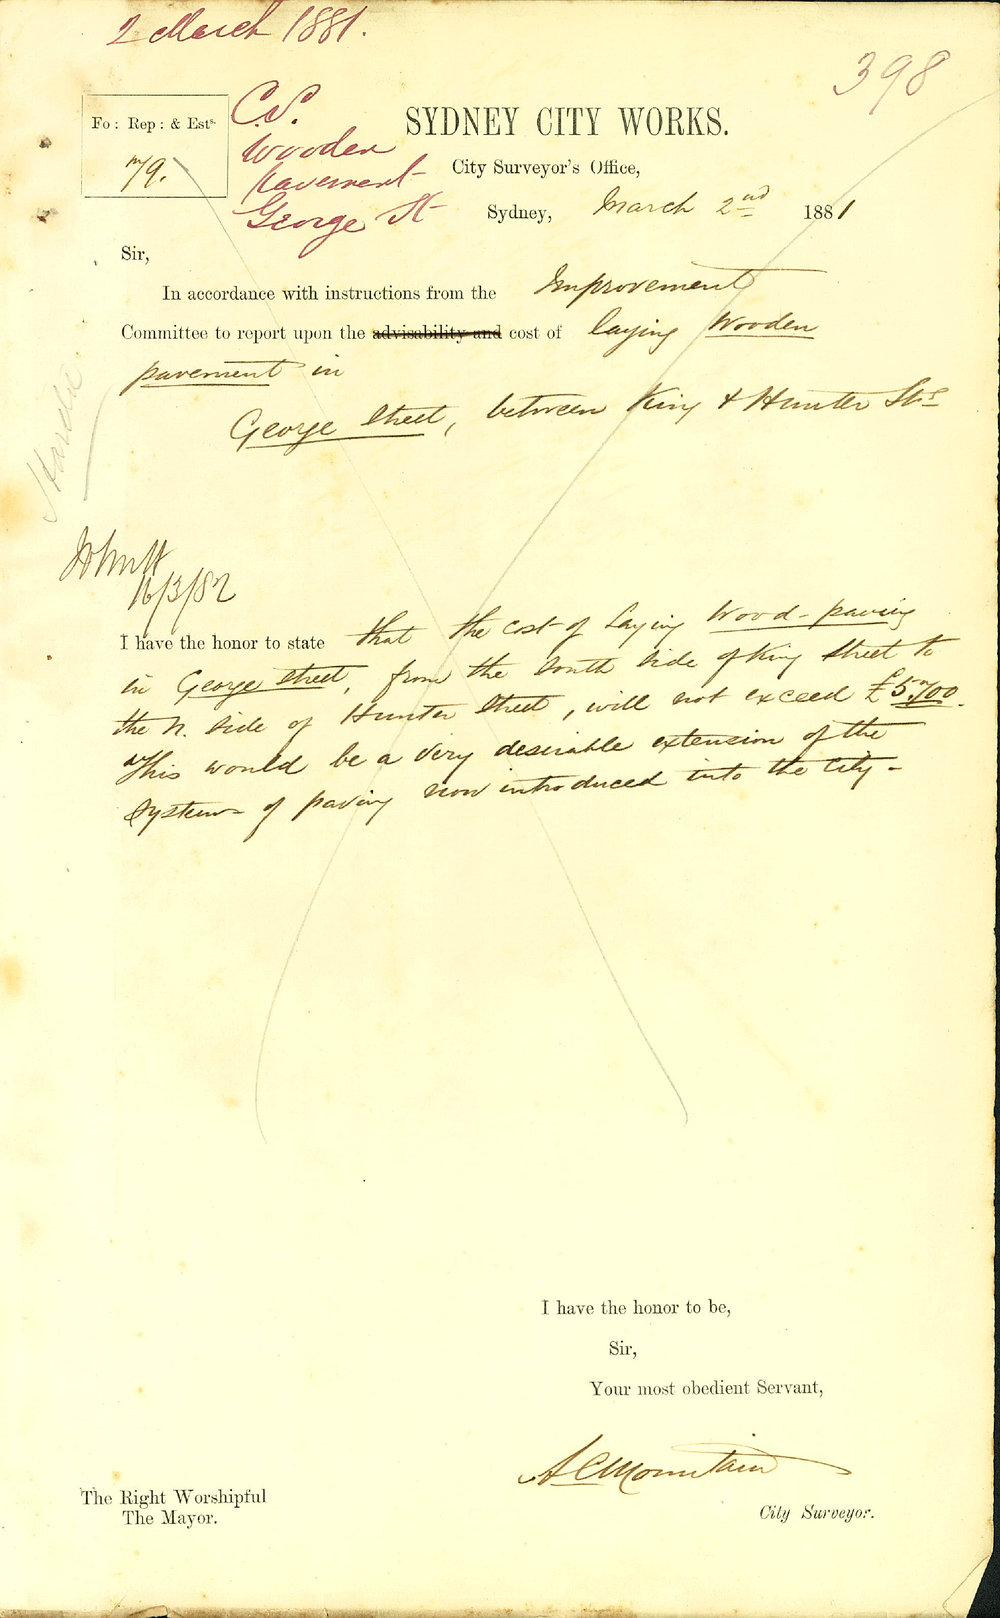 2 March 1881.
398
Fo: Rep: & Ests.
C.S.
Wooden
Pavement
George St
SYDNEY CITY WORKS.
City Surveyor's Office,
Sydney, March 2nd 1881
Sir,
In accordance with instructions from the Improvement
Committee to report upon the advisability and cost of laying Wooden
pavement in
George Street, between King & Hunter Sts
16/3/82
I have the honor to state that the cost of laying Wood-paving
in George Street, from the South side of King Street to
the N. side of Hunter Street, will not exceed
This would be a very desirable extension of the
system of paving now introduced into the City-
I have the honor to be,
Sir,
Your most obedient Servant,
A C Mountain
City Surveyor.
The Right Worshipful
The Mayor.